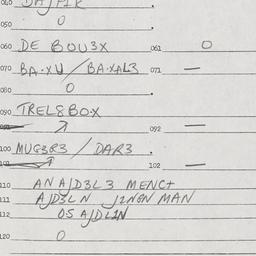 040 DAJPIK .
050 0 .
060 DE BOU3X 061 0
070 BA·XU / BA·XAL3 071 —
080 0 .
090 TREL8BOX
092 —
100 MUG3R3 / DAR3 .
102 —
110 AN AJD3L3 MENCT
111 AJD3LN J1NGN MAN
112 OS AJDL1N
120 0